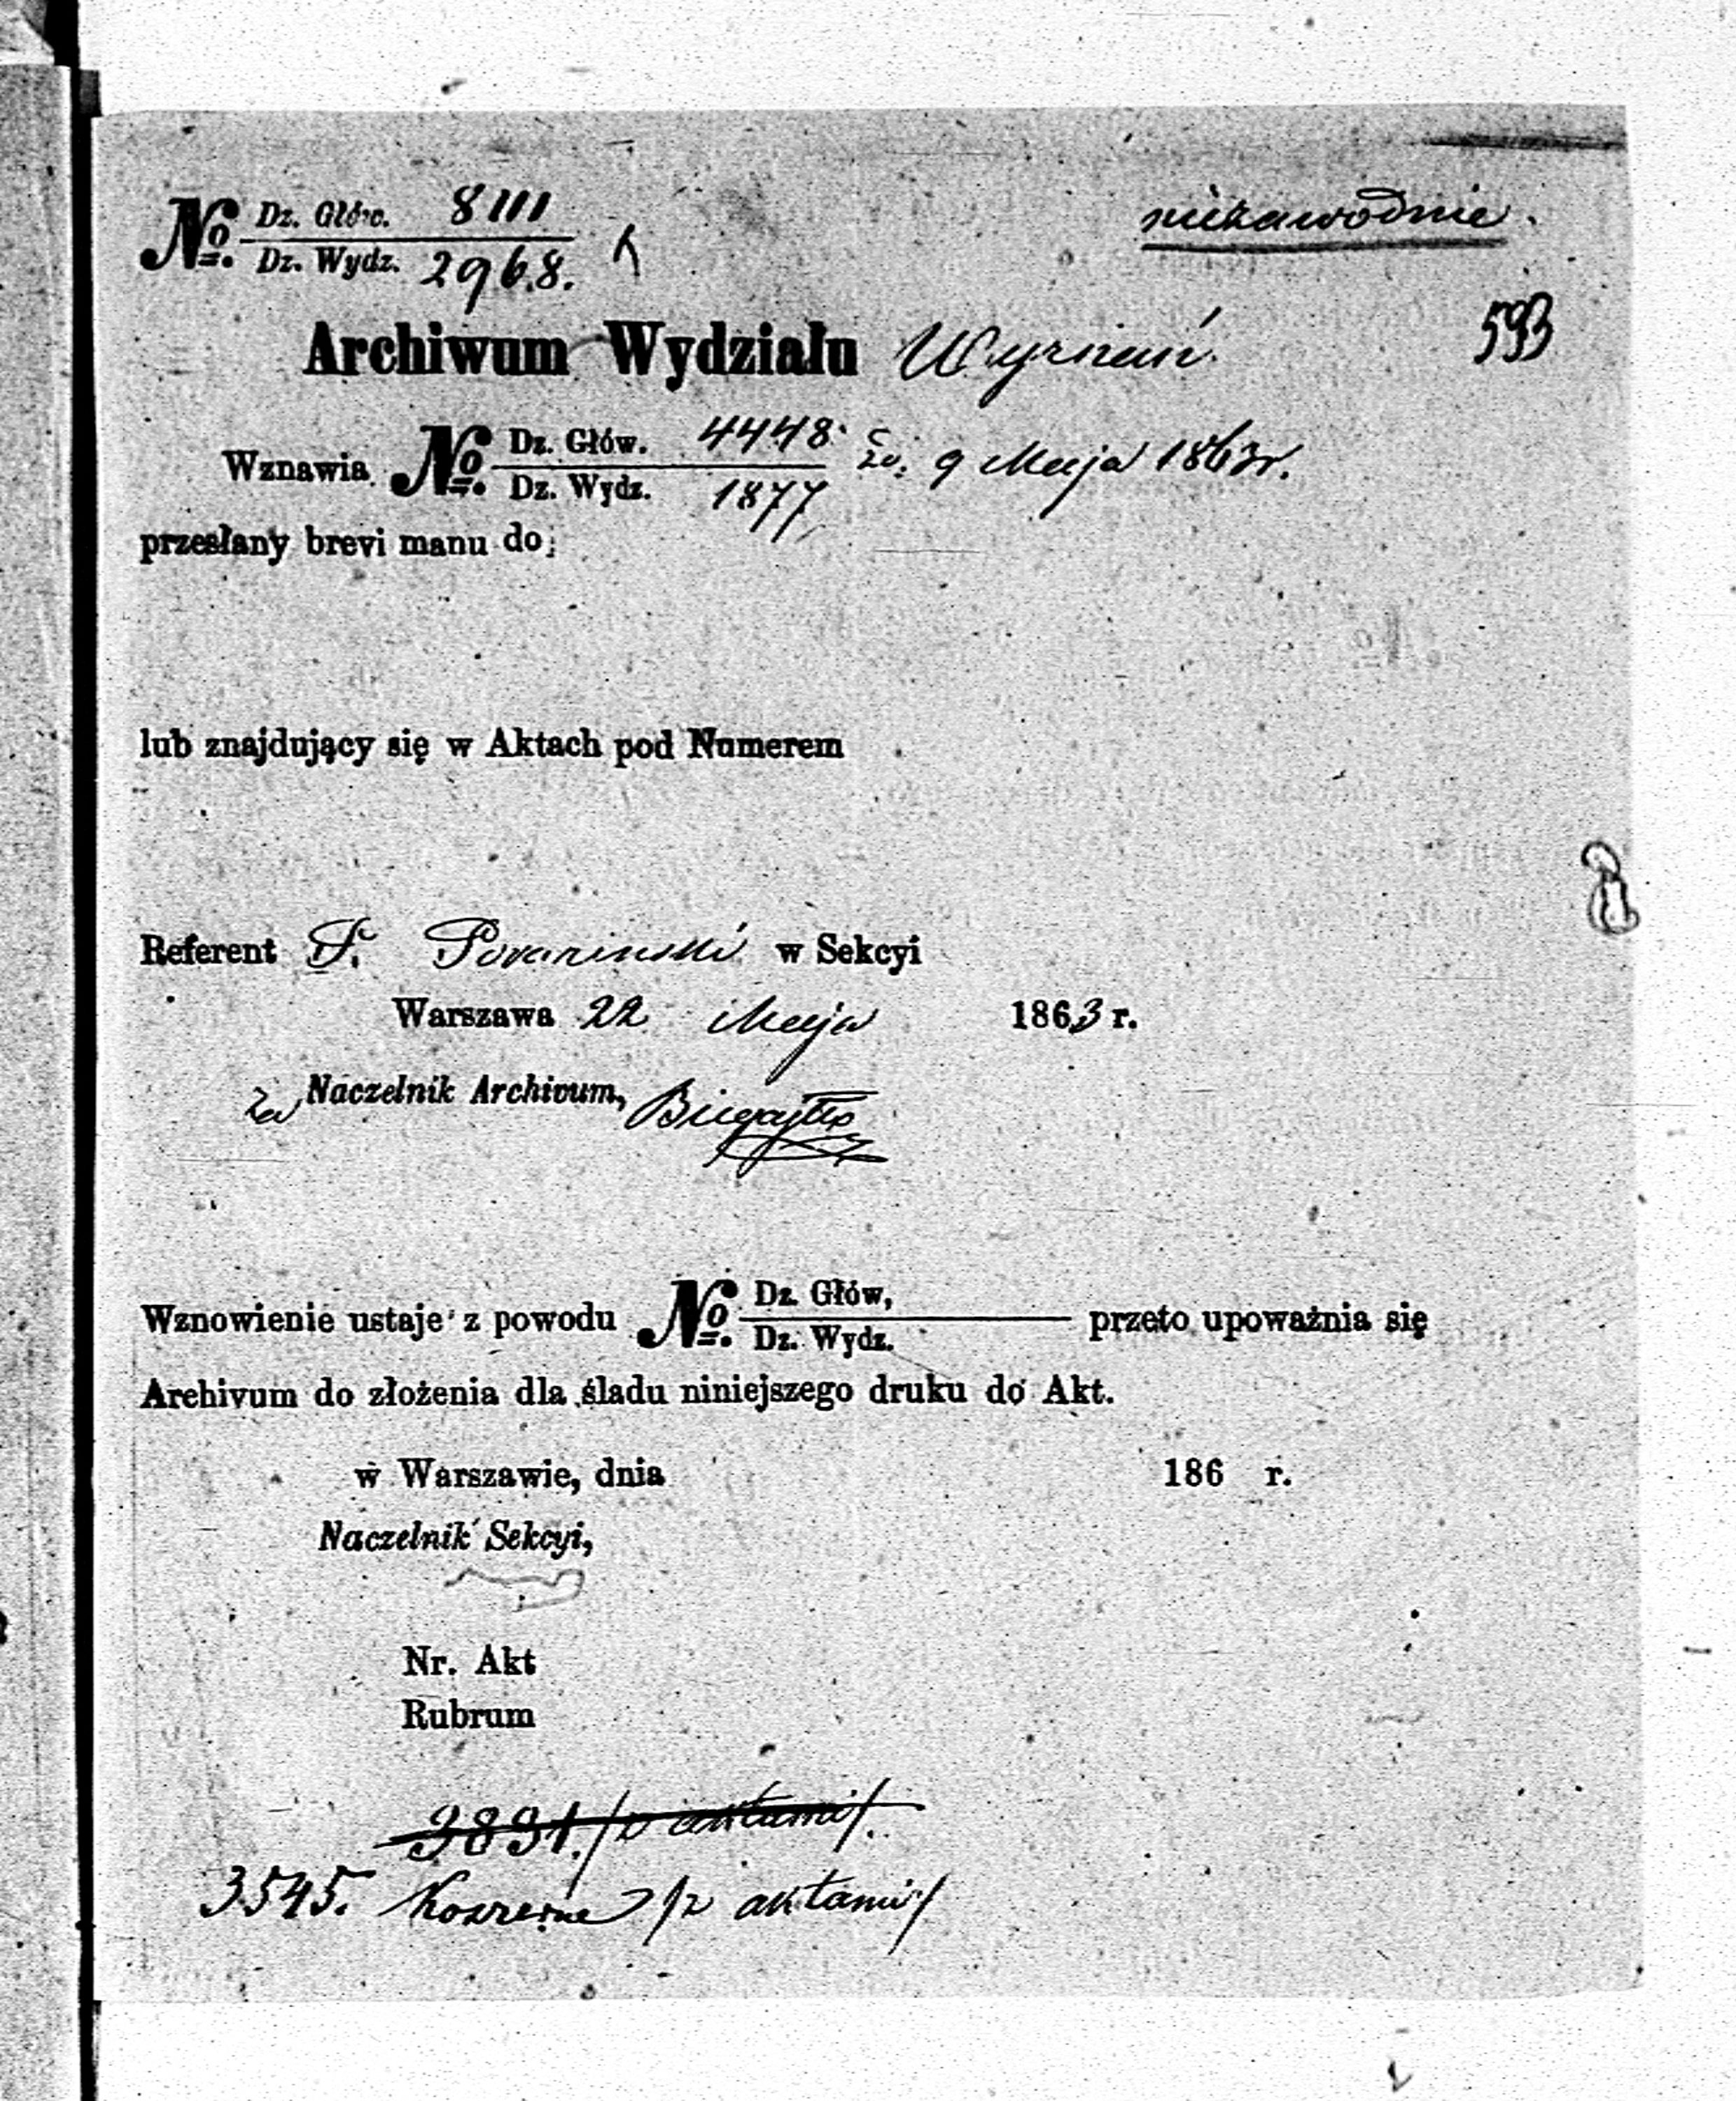 niezawodnie.
№ Dz. Głów. 8111
Dz. Wydz. 2968.
593
Archiwum Wydziału Wyznań
Wznawia № Dz. Głów. 4448 9 Maja 1863 r.
Dz. Wydz. 1877
przesłany brevi manu do:
lub znajdujący się w Aktach pod Numerem
Referent w Sekcyi
Warszawa 22 Maja 1863 r.
za Naczelnik Archivum,
Wznowienie ustaje z powodu № Dz. Głów, przeto upoważnia się
Dz. Wydz.
Archivum do złożenia dla śladu niniejszego druku do Akt.
w Warszawie, dnia 186 r.
Naczelnik Sekcyi,
Nr. Akt
Rubrum
3891. /z aktami/.
3545. /z aktami/